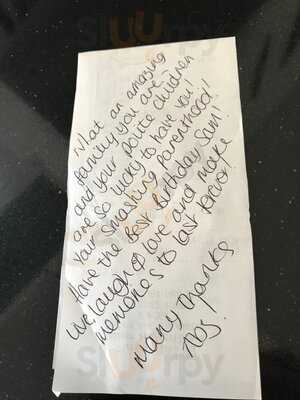 What an amazing
family you are -
and your polite children
are so lucky to have you!
Your smashing parenthood!
Have the Best Birthday Sam!
Live, laugh & love and make
memories to last forever
Many Thanks
Abs.
Sluurpy
Sluurpy